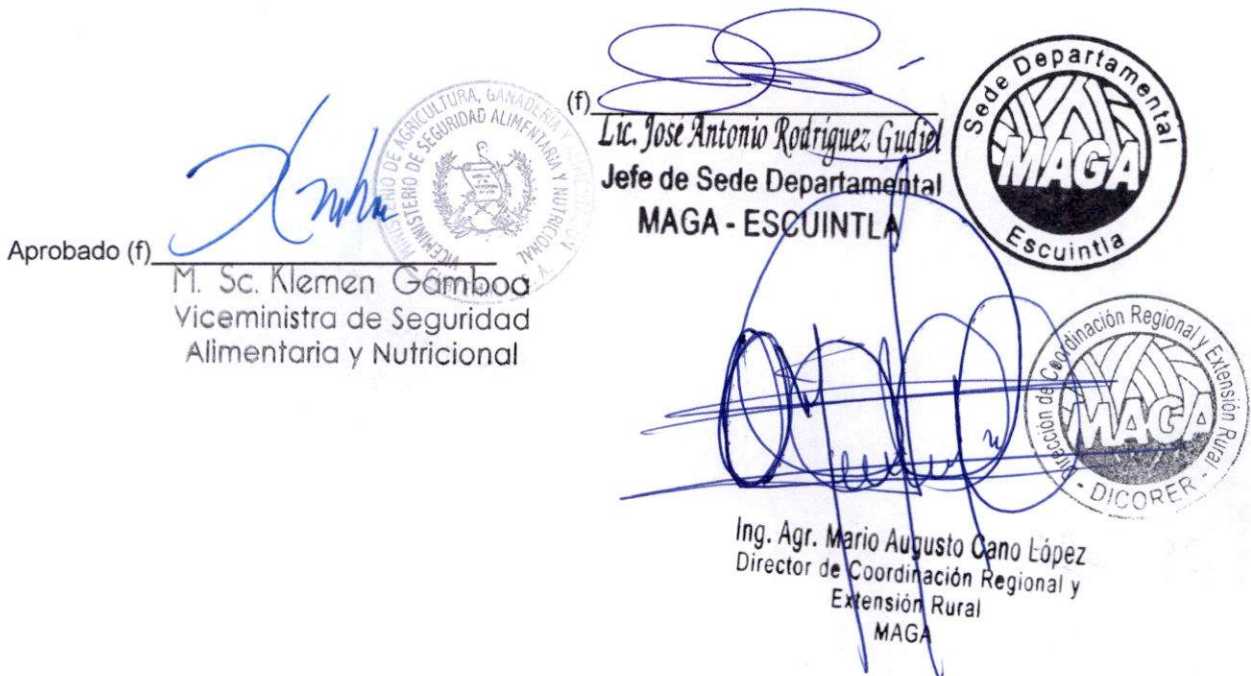 Aprobado (f)
M. Sc. Klemen Gamboa
Viceministra de Seguridad
Alimentaria y Nutricional
MINISTERIO DE AGRICULTURA, GANADERIA Y
VICEMINISTERIO DE SEGURIDAD ALIMENTARIA Y NUTRICIONAL
(f)
Lic. José Antonio Rodríguez Gudiel
Jefe de Sede Departamental
MAGA - ESCUINTLA
Sede Departamental
MAGA
Escuintla
Dirección de Coordinación Regional y Extensión Rural
MAGA
- DICORER -
Ing. Agr. Mario Augusto Cano López
Director de Coordinación Regional y
Extensión Rural
MAGA